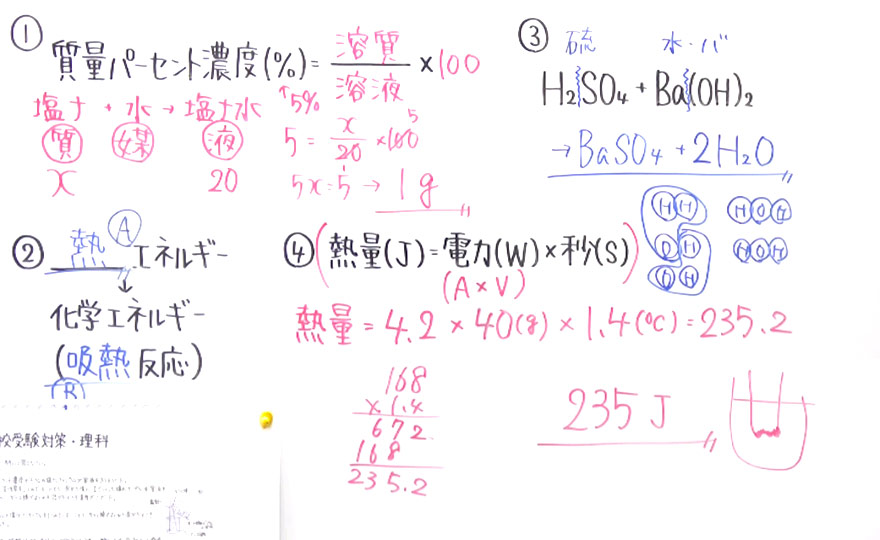 ①
質量パーセント濃度(%)=溶質/溶液×100
↑5%
塩+水→塩水
質 媒 液
x 20
5=x/20×100 5
5x=5→1g
② 熱Aエネルギー
↓
化学エネルギー
(吸熱反応)
B
③ 硫 水・バ
H₂SO₄+Ba(OH)₂
→BaSO₄+2H₂O
HH HOH
OH HOH
OH
④(熱量(J)=電力(W)×秒(S))
(A×V)
熱量=4.2×40(g)×1.4(℃)=235.2
168
×1.4
672
168
235.2
235J
校受験対策・理科